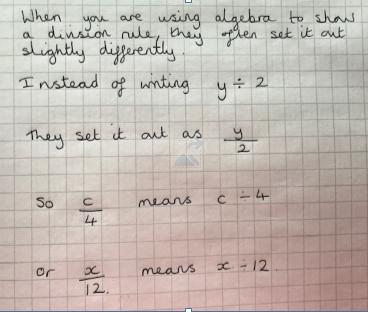 When you are using algebra to show
a division rule, they often set it out
slightly differently.
Instead of writing y ÷ 2
They set it out as y/2
So c/4 means c ÷ 4
or x/12. means x ÷ 12.